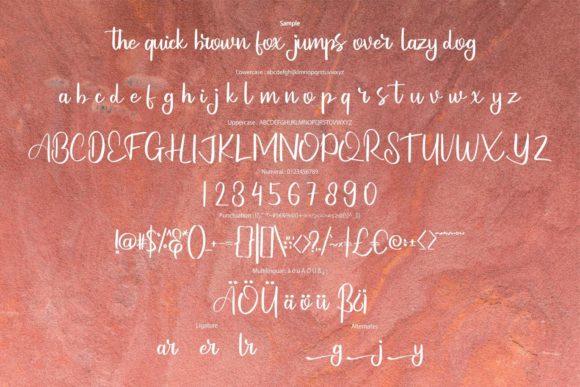 Sample
the quick brown fox jumps over lazy dog
Lowercase : abcdefghijklmnopqrstuvwxyz
a b c d e f g h i j k l m n o p q r s t u v w x y z
Uppercase : ABCDEFGHIJKLMNOPQRSTUVWXYZ
ABCDEFGHIJKLMNOPQRSTUVWXYZ
Numeral : 0123456789
1 2 3 4 5 6 7 8 9 0
Punctuation :
!@#$%^&*()_
Multilingual :
ÄÖÜ äöü
Ligature
Alternates
ar er lr
g j y